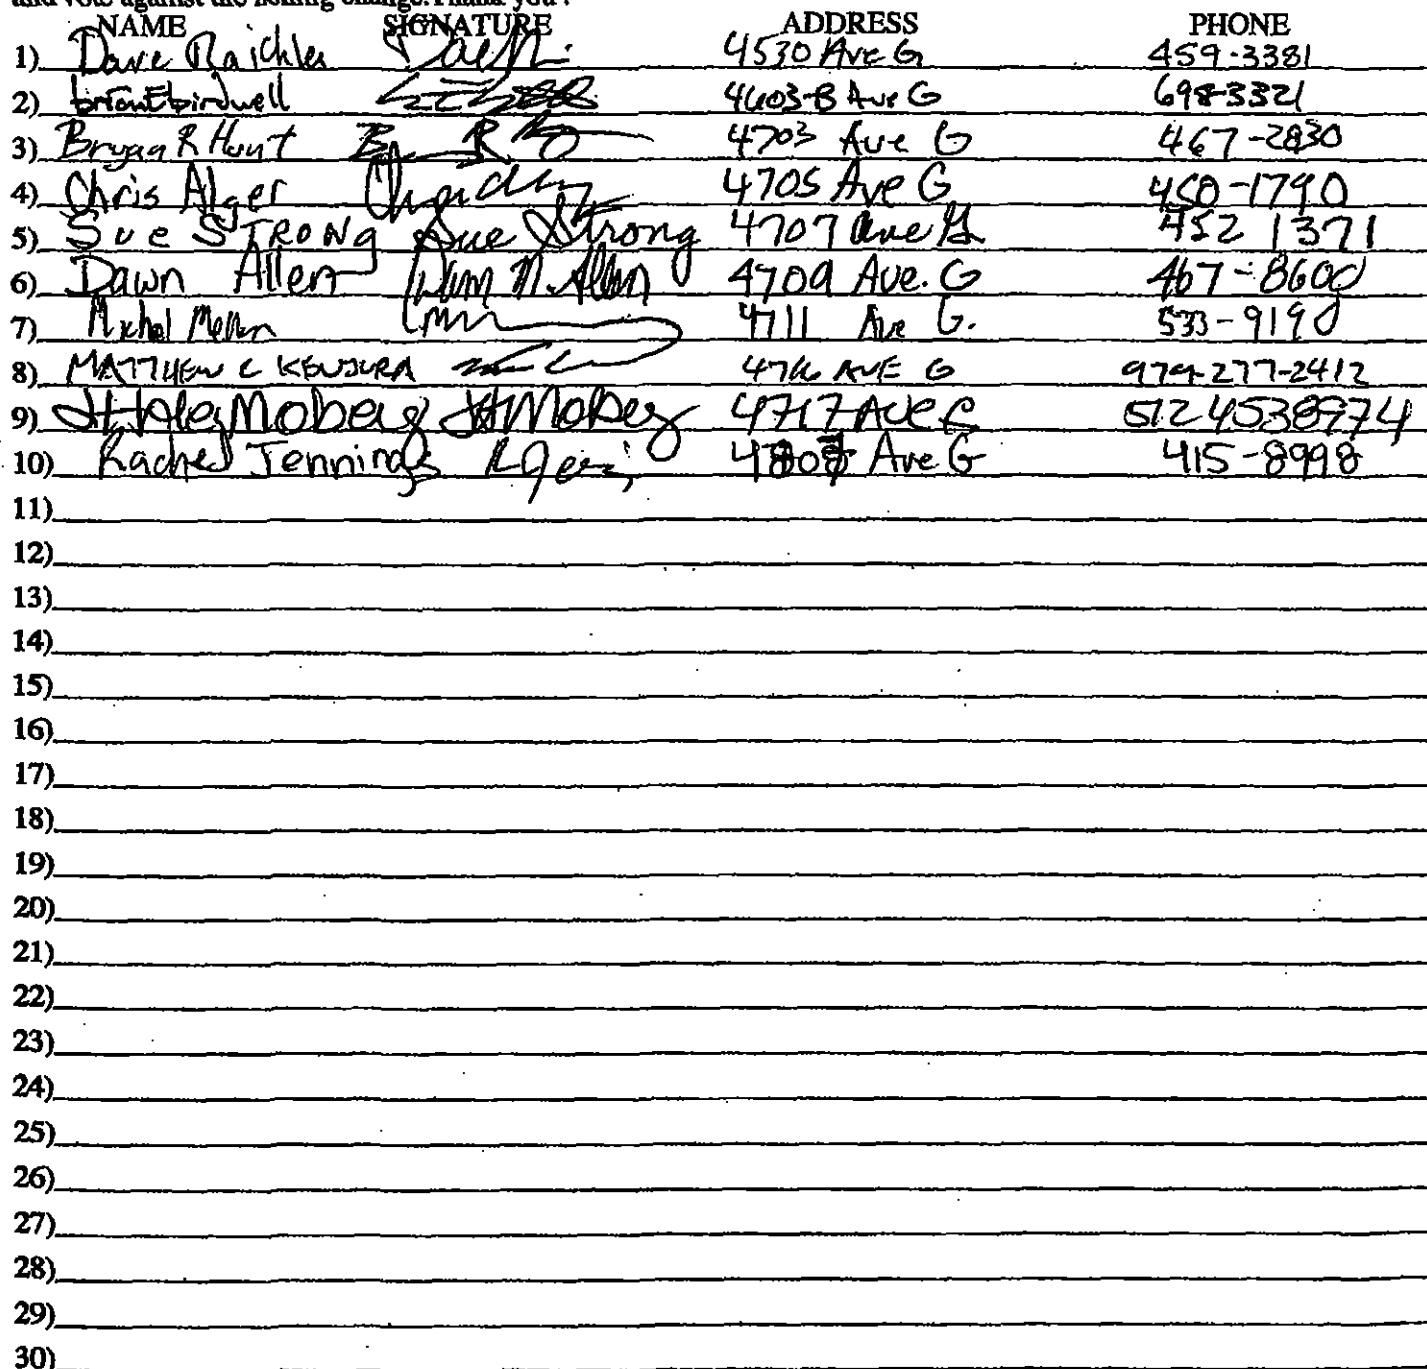 and vote against the zoning change. Thank you.
NAME SIGNATURE ADDRESS PHONE
1) Dave Raichler 4530 Ave G 459-3381
2) brian E birdwell 4603-B Ave G 698-3321
3) Bryan R Hunt 4703 Ave G 467-2830
4) Chris Alger 4705 Ave G 450-1790
5) Sue STRONg Sue Strong 4707 Ave G 452 1371
6) Dawn Allen Dawn M. Allen 4709 Ave. G 467-8600
7) 4711 Ave G. 533-9190
8) MATTHEW C KENJURA AVE G 979-277-2412
9) Moberg Moberg 4717 Ave 512 4538974
10) Rachel Jennings Ave G 415-8998
11)
12)
13)
14)
15)
16)
17)
18)
19)
20)
21)
22)
23)
24)
25)
26)
27)
28)
29)
30)